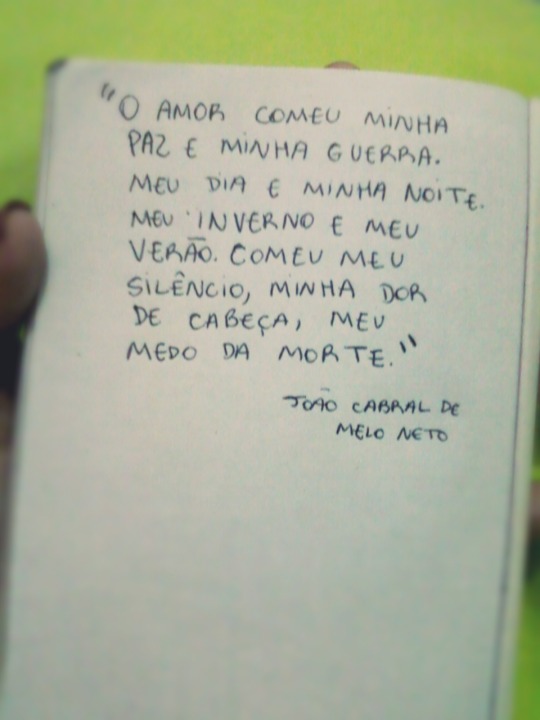 "O AMOR COMEU MINHA
PAZ E MINHA GUERRA.
MEU DIA E MINHA NOITE.
MEU INVERNO E MEU
VERÃO. COMEU MEU
SILÊNCIO, MINHA DOR
DE CABEÇA, MEU
MEDO DA MORTE."
JOÃO CABRAL DE
MELO NETO